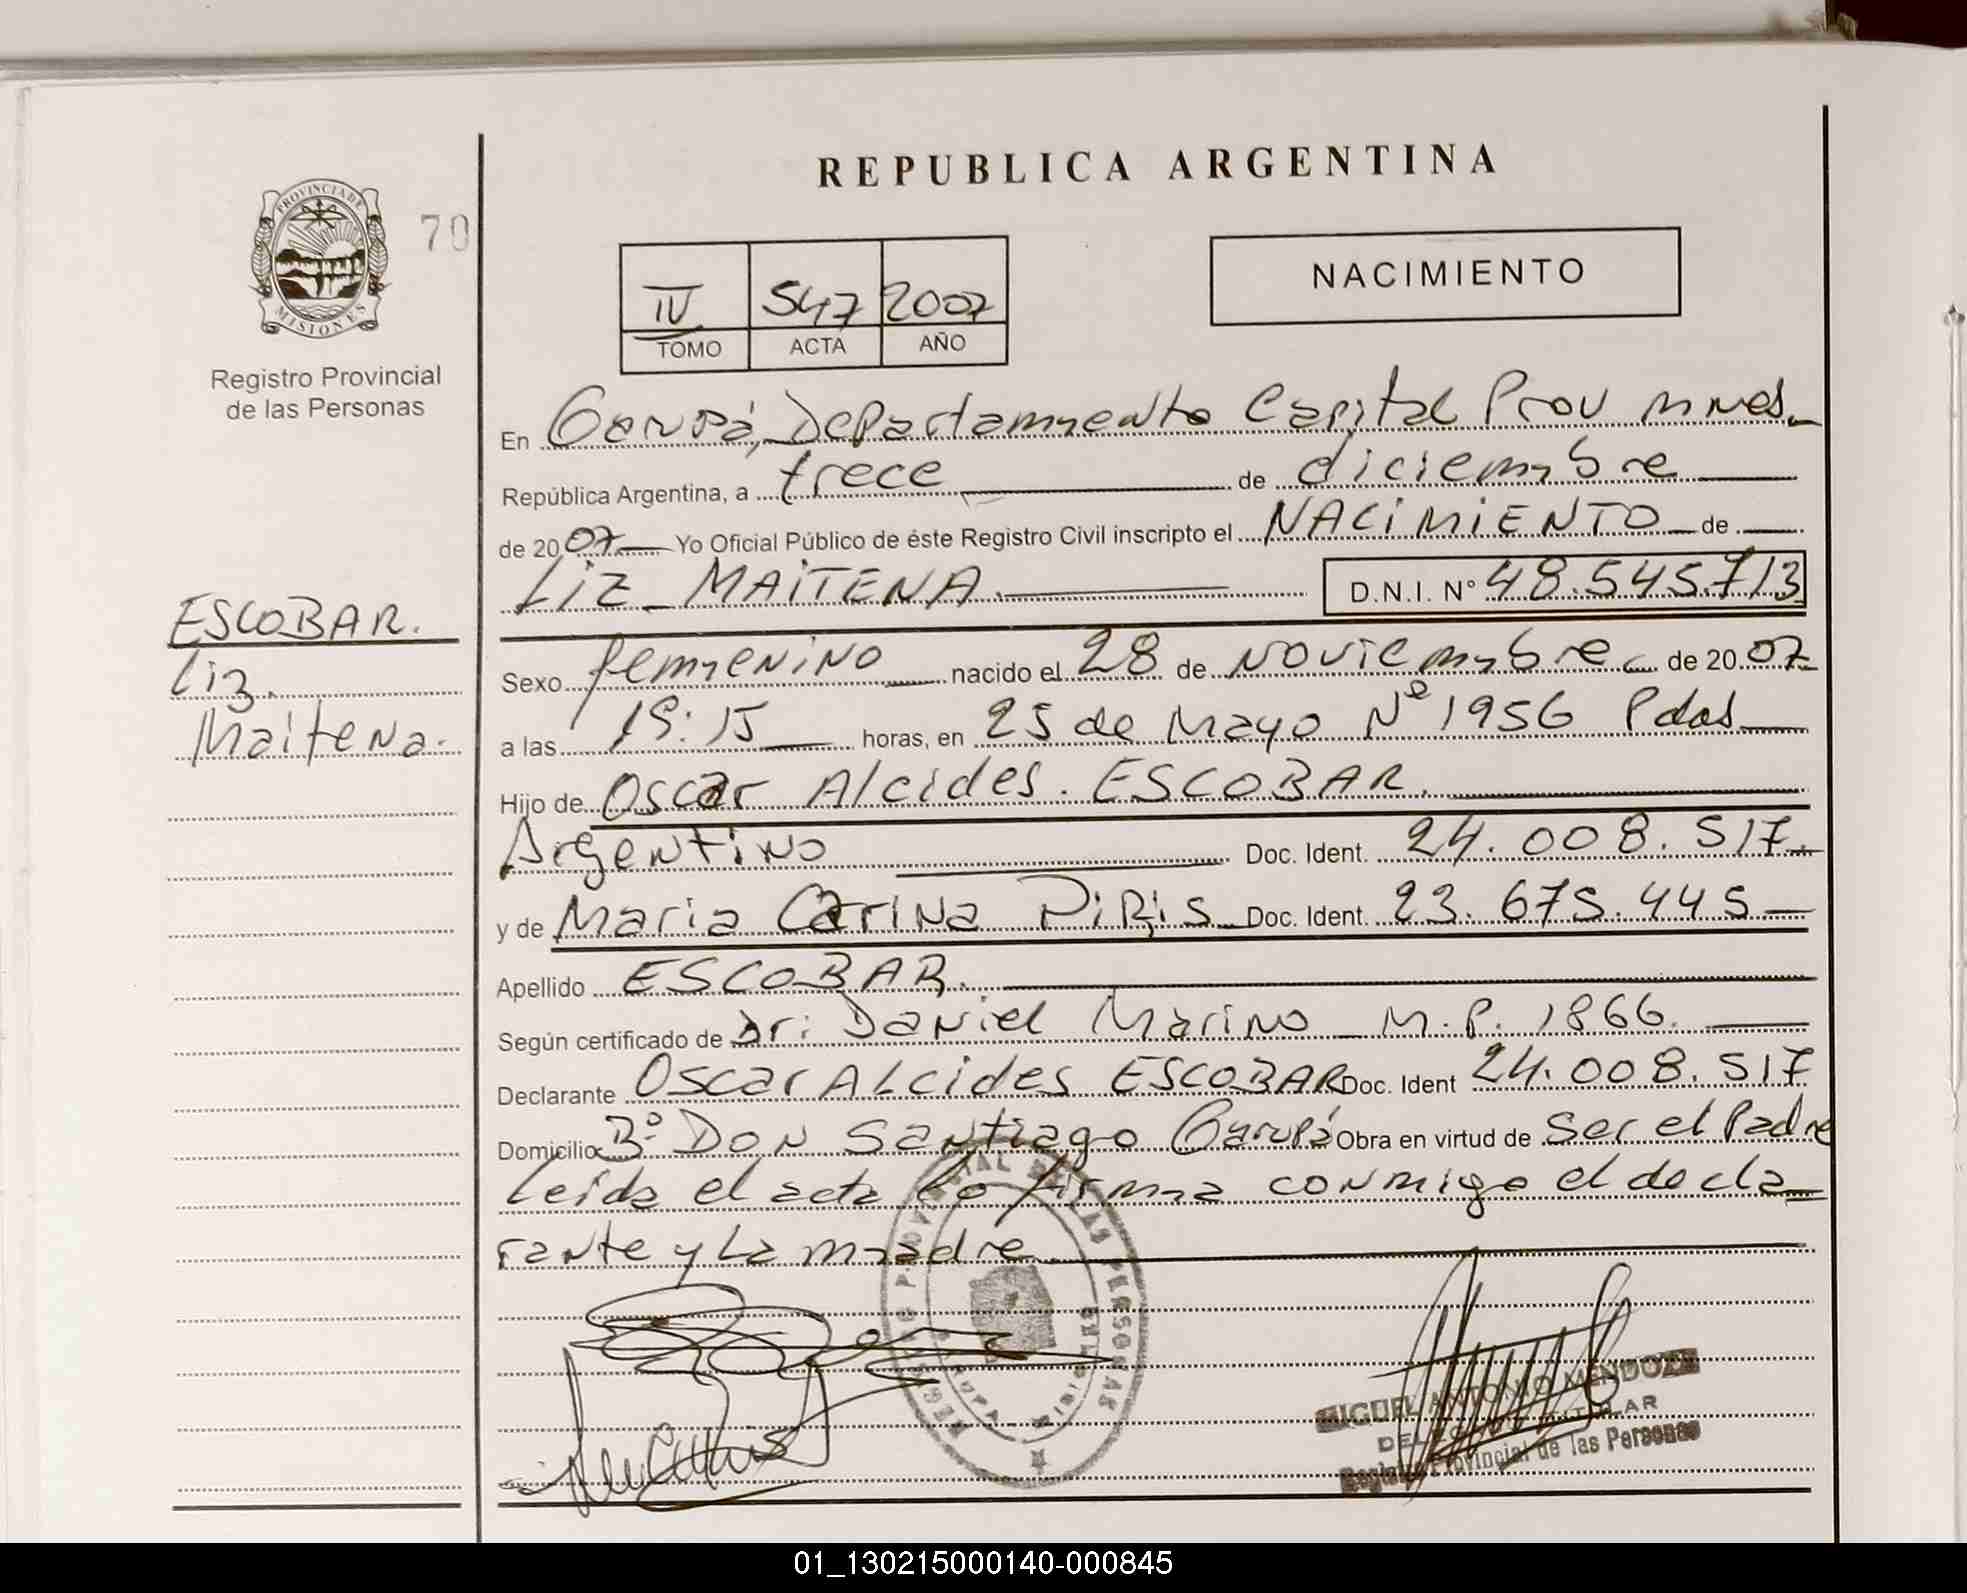 REPUBLICA ARGENTINA
PROVINCIA DE
MISIONES
70
Registro Provincial
de las Personas
IV 547 2007
TOMO ACTA AÑO
NACIMIENTO
En Garupá, Departamento Capital Prov Mnes.
República Argentina, a trece de diciembre
de 2007 Yo Oficial Público de éste Registro Civil inscripto el NACIMIENTO de
LIZ MAITENA. D.N.I. N° 48.545.713
ESCOBAR.
Liz.
Maitena.
Sexo femenino nacido el 28 de noviembre de 2007
a las 19:15 horas, en 25 de Mayo Nº 1956 Pdas
Hijo de Oscar Alcides. ESCOBAR.
Argentino Doc. Ident. 24.008.517.
y de Maria Carina PiRis Doc. Ident. 23.675.445
Apellido ESCOBAR.
Según certificado de Dr: Daniel Marino M.P. 1866.
Declarante Oscar ALcides ESCOBAR Doc. Ident 24.008.517
Domicilio Bº DON Santiago Garupá Obra en virtud de ser el Padre
Leida el acta lo firma conmigo el decla
rante y La madre
REGISTRO PROVINCIAL DE LAS PERSONAS
GARUPA MISIONES
MIGUEL ANTONIO MENDOZA
DELEGADO TITULAR
Registro Provincial de las Personas
01_130215000140-000845